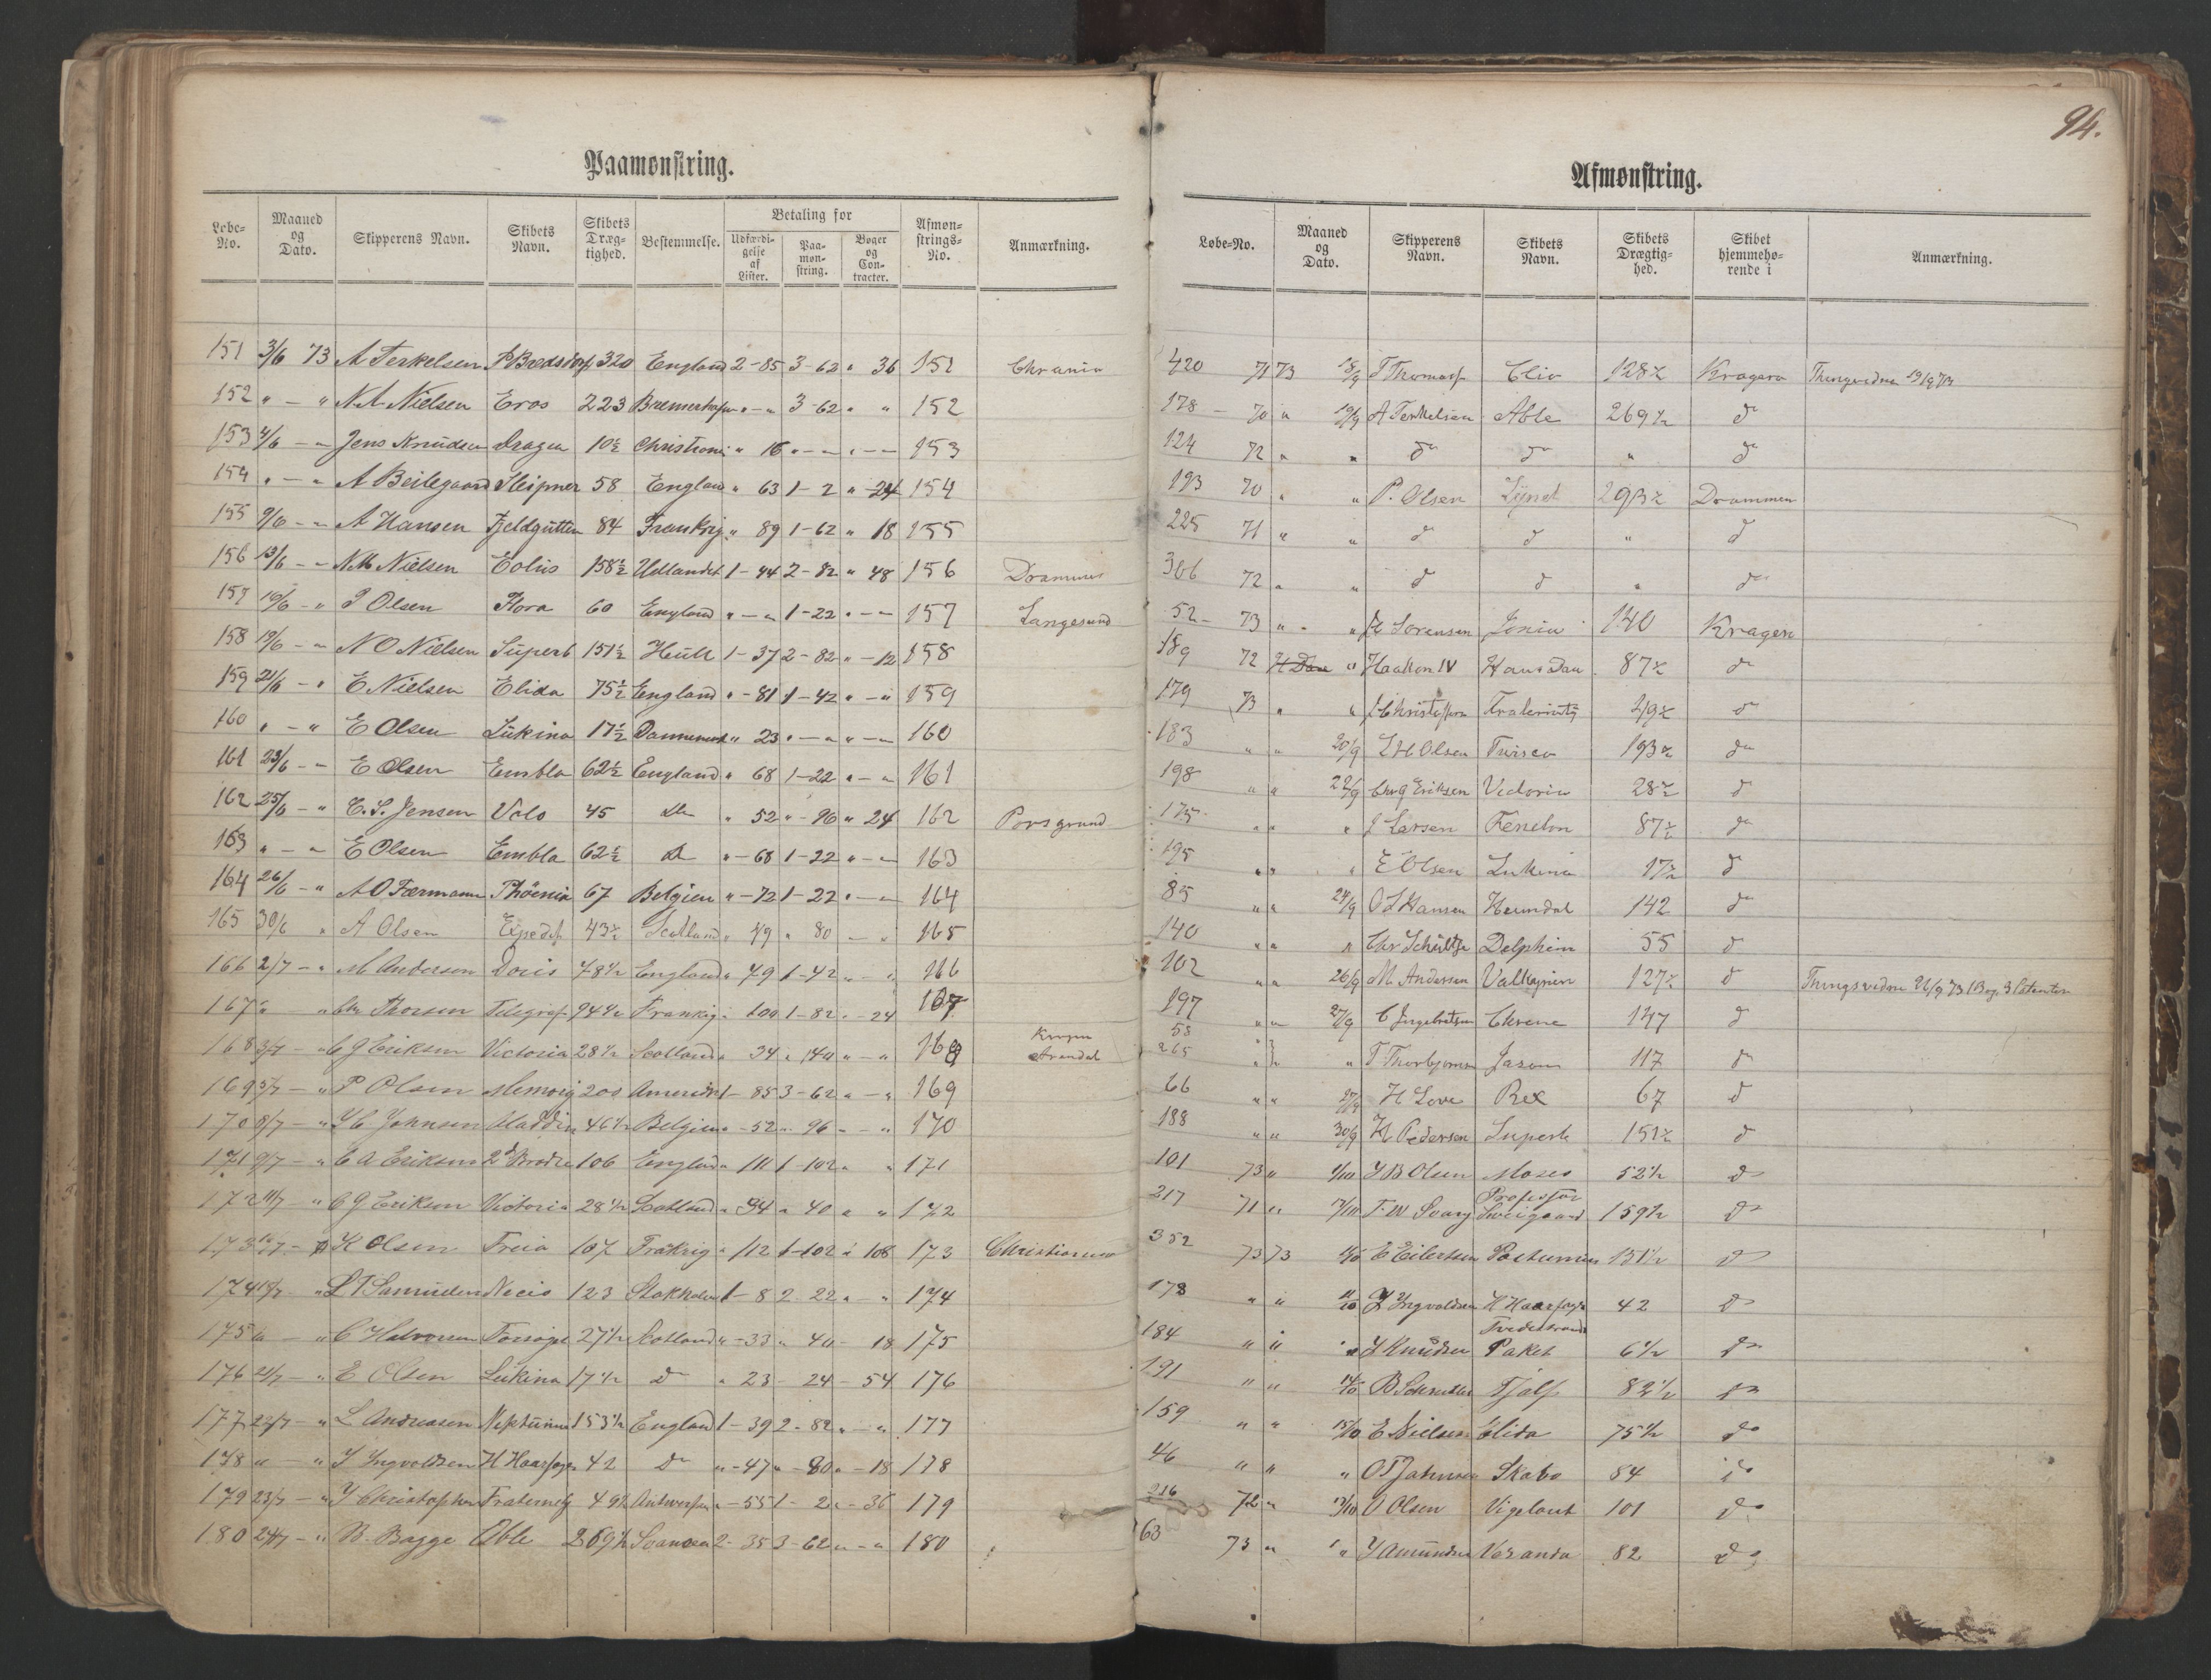 94.
Paamønstring.
Løbe-No. Maaned og Dato. Skipperens Navn. Skibets Navn. Skibets Dræg-tighed. Bestemmelse. Betaling for Udfærdi-gelse af Lister. Paa-møn-string. Bøger og Con-tracter. Afmøn-strings-No. Anmærkning.
151 3/6 73 A Terkelsen P Bredsdorf 320 England 2-85 3-62 " 36 151 Chrania
152 " - " N A Nielsen Eros 223 Bremerhafen "-" 3-62 " " 152
153 4/6 - " Jens Knudsen Dragen 10½ Christiania " 16 " - " " - - 153
154 " - " A Beilegaard Sleipner 58 England " 63 1-2 " 24 154
155 9/6 - " A Hansen Fjeldgutten 84 Frankrig " 89 1-62 " 18 155
156 13/6 - " N M Nielsen Eolus 158½ Udlandet 1-44 2-82 " 48 156 Drammen
157 16/6 - " P Olsen Flora 60 England " - " 1-22 " - " 157 Langesund
158 19/6 - " N O Nielsen Superb 151½ Hull 1-37 2-82 " -12 158
159 21/6 - " E Nielsen Elida 75½ England " -81 1-42 " - " 159
160 " - " E Olsen Lukina 17½ Danmark " 23 " - " " - " 160
161 23/6 - " E Olsen Embla 62½ England " 68 1-22 " - " 161
162 25/6 - " C. S. Jensen Volo 45 do " 52 " -96 " 24 162 Porsgrund
163 " - " E Olsen Embla 62½ do " -68 1-22 " - " 163
164 26/6 - " A O Færmann Phöenix 67 Belgien " -72 1-22 " - " 164
165 30/6 " A Olsen Expedit 43½ Scotland " 49 " 80 - " 165
166 2/7 - " M Andersen Doris 48½ England " 49 1-42 " - " 166
167 " " Chr Thorsen Telegraf 94½ Frankrig " 100 1-82 " -24 167
168 3/7 - " C G Eriksen Victoria 28½ Scotland " 34 " 140 " - " 168 Arendal
169 5/7 - " P Olsen Memory 200 Amerika 1-85 3-62 " - " 169
170 8/7 - " J C Johnsen Aladdin 46½ Belgien " -52 " 96 - " 170
171 9/7 - " C A Eriksen 2de Brødre 106 England " 111 1-102 " " 171
172 11/7 - " C G Eriksen Victoria 28½ Scotland " 34 " 40 " " 172
173 - K Olsen Freia 107 Frakrig " 112 1-102 " 108 173 Christiania
174 " L T Samuelsen 123 Stokholm 1-8 2-22 " - " 174
175 " - " C Halvorsen Forsøget 27½ Scotland " -33 " 40 - 18 175
176 21/7 - " E Olsen Lukina 17½ do " 23 - 24 - 54 176
177 22/7 - " L Andreasen Neptunus 153½ England 1-39 2-82 " - " 177
178 " - " J Ingvoldsen H Haarfager 42 do " -47 " -80 " -18 178
179 23/7 - " J Christophersen Fraternity 49½ Antwerpen " -55 1-2 " -36 179
180 24/7 - " B. Bagge Able 269½ Svansea 2-35 3-62 " - " 180
Afmønstring.
Løbe-No. Maaned og Dato. Skipperens Navn. Skibets Navn. Skibets Drægtig-hed. Skibet hjemmehø-rende i Anmærkning.
420 71 73 18/9 T Thomas Clio 128½ Kragerø Thingvidne 19/9 73
178 - 70 " 19/9 A Terkelsen Able 269½ do
124 72 " " do do " do
193 70 " " P. Olsen 293½ Drammen
225 71 " " do do " do
306 72 " " do do " do
52 - 73 " - " H Sorensen Jonia 140 Kragerø
189 72 H Dan " Haakon IV Hans Dau 87½ do
179 73 " " J Christoffersen Fraternity 49½ do
183 " " 20/9 L H Olsen 193½ do
198 " " 22/9 Chr G Eriksen Victoria 28½ do
175 " " " J Larsen Fenelon 87½ do
195 " " " E Olsen Lukina 17½ do
85 " " 24/9 O L Hansen Heimdal 142 do
140 " " " Chr Schültze Delphin 55 do
102 " " 26/9 M. Andersen Valkyrien 127½ do
197 " " 27/9 C Ingebretsen Chrene 147 do
58
265 " T Thorbjornsen Jason 117 do
66 " " 27/9 H Love Rex 67 do
188 " " 30/9 H Pedersen Superb 151½ do
101 73 " 1/10 J B Olsen Moses 52½ do
217 71 " F. W Svary Professor Sweigaard 159½ do
352 73 73 E Eilertsen Postumius 151½ do
178 " " 11/10 J Ingvoldsen H Haarfager 42 do
184 " " " J Knudsen Tvedestrand Paket 6½ do
191 " " 14/10 B Schrøder Fjalf 82½ do
159 " " 15/10 E Nielsen Elida 75½ do
46 " " " O T Johnsen Skabo 84 do
216 72 " O Olsen Vigelant 101 do
63 73 " " J Amundsen Veranda 82 do